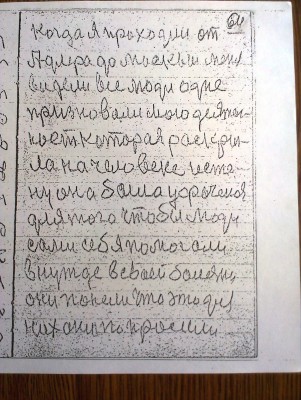 64
Когда я проходил от
Адлра до москвы меня
видели все люди одне
призновали мою деятел-
ност которая раскры-
ла на человеке исте-
ну она была
для того чтобы люди
сами себя помогали
в нужде в своей болезни
они поняли что это для
них они попросили